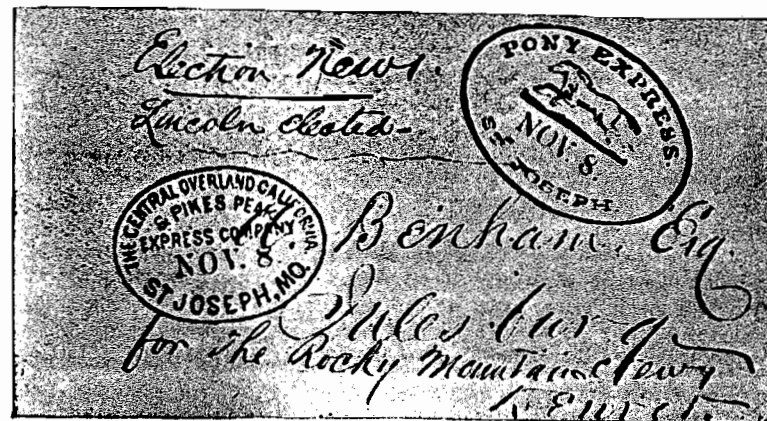 Election News.
Lincoln elected.
PONY EXPRESS.
NOV. 8.
ST JOSEPH
THE CENTRAL OVERLAND CALIFORNIA
& PIKES PEAK
EXPRESS COMPANY
NOV. 8.
ST JOSEPH, MO.
Benham, Esq.
Julesburg
for the Rocky Mountain News